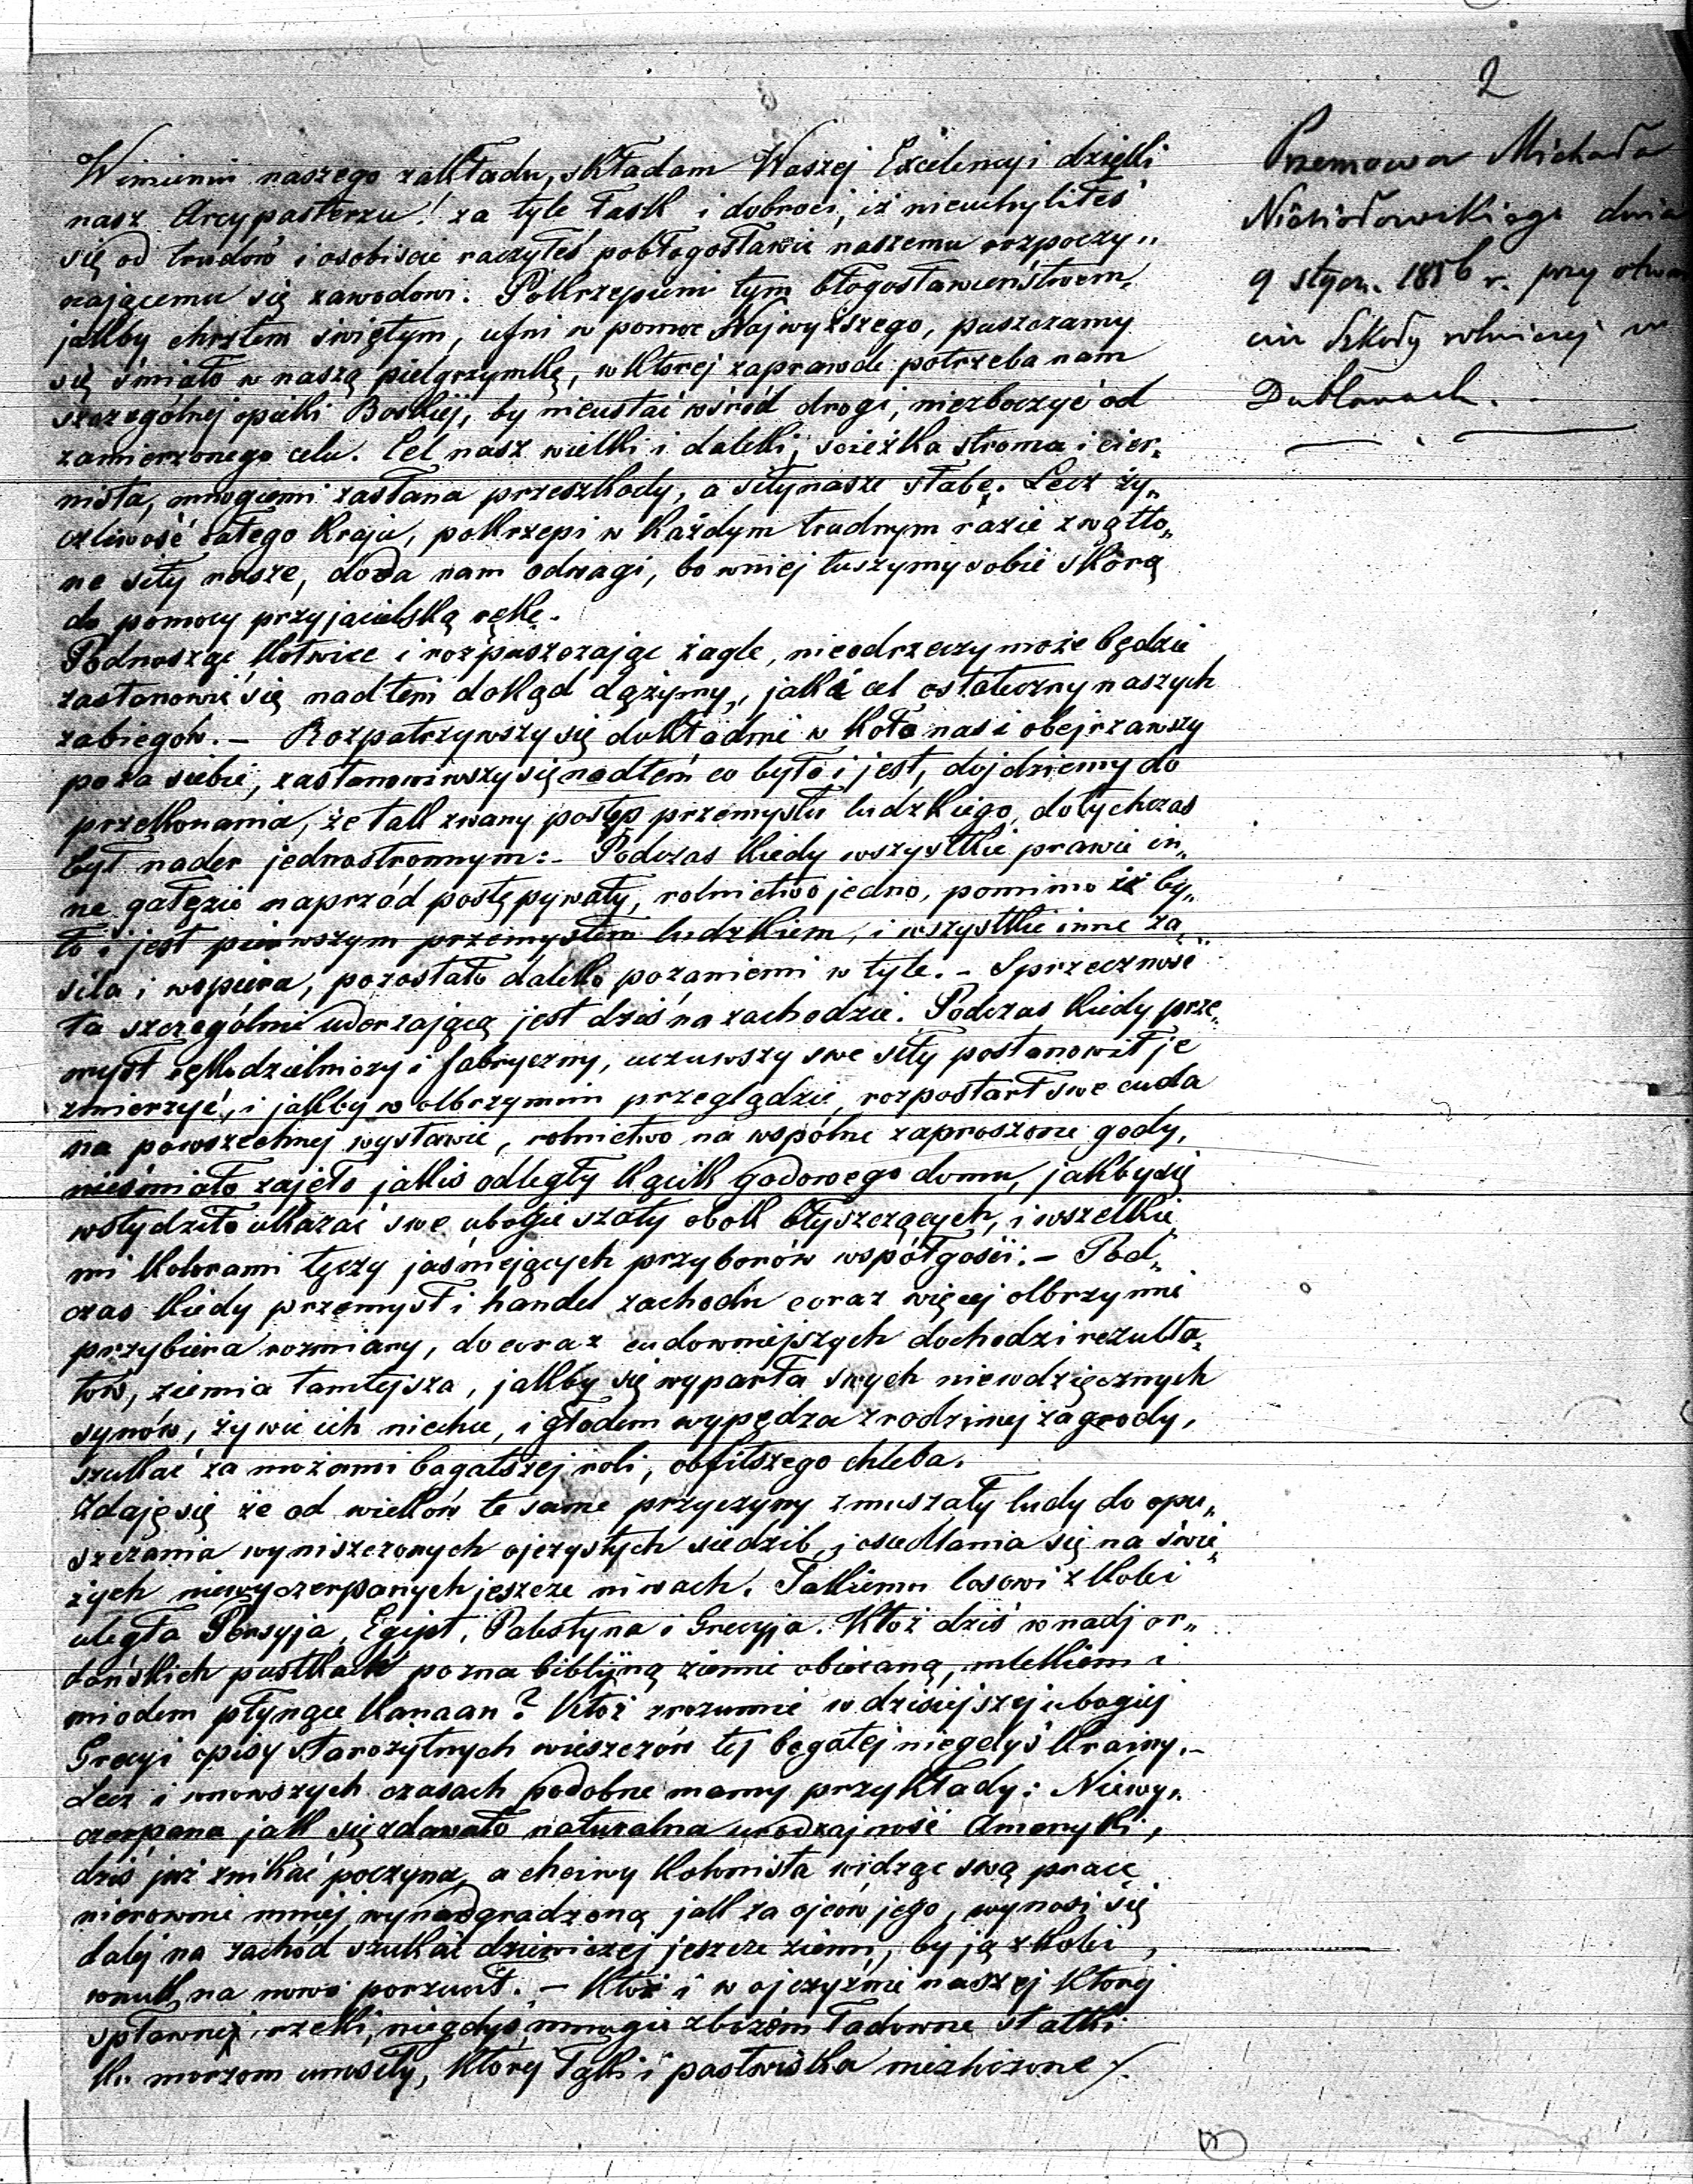 2
Przemowa Michała
Nichołowskiego dnia
9 stycz. 1856 r. przy otwar
ciu Szkoły rolniczej w
Dublanach.
W imieniu naszego zakładu, składam Waszej Excelencyi dzięki
nasz Arcypasterzu! za tyle łask i dobroci, iż nieuchyliłeś
się od trudów i osobiscie raczyłeś pobłogosławić naszemu rozpoczy„
nającemu się zawodowi. Pokrzepieni tym błogosławieństwem,
jakby chrztem świętym, ufni w pomoc Najwyższego, puszczamy
się śmiało w naszą pielgrzymkę, w której zaprawdę potrzeba nam
szczególnej opieki Boskiej, by nieustać wśród drogi, niezboczyć od
zamierzonego celu. Cel nasz wielki i daleki, scieżka stroma i cier„
nista, mnogiemi zasłana przeszkody, a siły nasze słabe. Lecz ży„
czliwość całego kraju, pokrzepi w każdym trudnym razie zwątlo„
ne siły nasze, doda nam odwagi, bo w niej tuszymy sobie skorą
do pomocy przyjacielską rękę.
Podnosząc kotwice i rozpuszczając żagle, nieodrzeczy może będzie
zastanowić się nadtem dokąd dążymy, jaki cel ostateczny naszych
zabiegów. – Rozpatrzywszy się dokładnie w koło nas i obejrzawszy
poza siebie, zastanowiwszy się nadtem co było i jest, dojdziemy do
przekonania, że tak zwany postęp przemysłu ludzkiego, dotychczas
był nader jednostronnym: – Podczas kiedy wszystkie prawie in„
ne gałęzie naprzód postępywały, rolnictwo jedno, pomimo iż by„
ło i jest pierwszym przemysłem ludzkiem, i wszystkie inne za„
sila i wspiera, pozostało daleko pozaniemi w tyle. – Sprzeczność
ta szczególnie uderzającą jest dziś na zachodzie. Podczas kiedy prze„
mysł rękodzielniczy i fabryczny, uczuwszy swe siły postanowił je
zmierzyć, i jakby w olbrzymim przeglądzie, rozpostarł swe cuda
na powszechnej wystawie, rolnictwo na wspólne zaproszone gody,
nieśmiało zajęło jakiś odległy kącik godowego domu, jakby się
wstydziło ukazać swe ubogie szaty obok błyszczących, i wszelkie„
mi kolorami tęczy jaśniejących przyborów współgości: – Pod„
czas kiedy przemysł i handel zachodu coraz więcej olbrzymie
przybiera rozmiary, do coraz cudowniejszych dochodzi rezulta„
tów, ziemia tamtejsza, jakby się wyparła swych niewdzięcznych
synów, żywić ich niechce, i głodem wypędza z rodzinnej zagrody,
szukać za morzami bogatszej roli, obfitszego chleba.
Zdaję się że od wieków te same przyczyny zmuszały ludy do opu„
szczania wyniszczonych ojczystych siedzib, i osiedlania się na świe„
żych niewyczerpanych jeszcze niwach. Takiemu losowi z kolei
uległa Persyja, Egipt, Palestyna i Grecyja. Któż dziś w nadjor„
dańskich pustkach pozna biblijną ziemie obiecaną, mlekiem i
miodem płynące Kanaan? Któż zrozumie w dzisiejszej ubogiej
Grecyi opisy starożytnych wieszczów tej bogatej niegdyś krainy. –
Lecz i w nowszych czasach podobne mamy przykłady: Niewy„
czerpana jak się zdawało naturalna urodzajność Ameryki,
dziś już znikać poczyna, a chciwy kolonista widząc swą pracę
nierównie mniej wynadgradzoną jak za ojców jego, wynosi się
dalej na zachód szukać dziewiczej jeszcze ziemi, by ją z kolei
wnuk na nowo porzucił. – Któż i w ojczyźnie naszej której
spławne rzeki, niegdyś mnogie zbożem ładowne statki
ku morzom unosiły, której łąki i pastwiska niezliczone